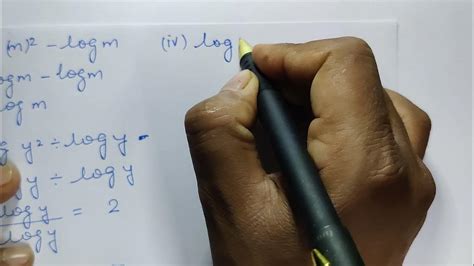 (m)² - log m
(iv) log
og m - log m
og m
g y² ÷ log y
g y ÷ log y
log y / log y = 2